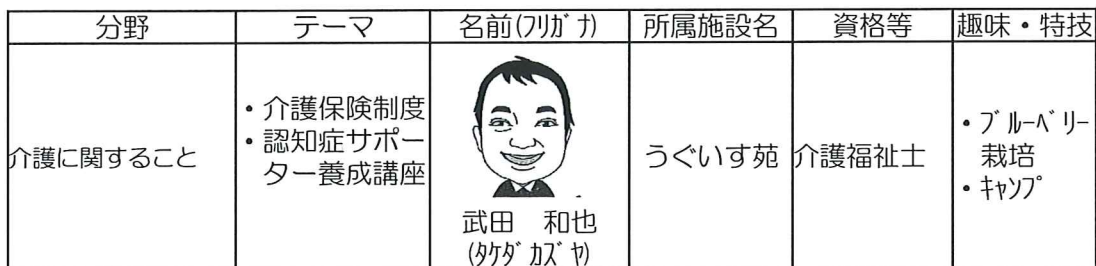 分野 テーマ 名前(ﾌﾘｶﾞﾅ) 所属施設名 資格等 趣味・特技
介護に関すること
・介護保険制度
・認知症サポー
ター養成講座
武田 和也
(ﾀｹﾀﾞ ｶｽﾞﾔ)
うぐいす苑
介護福祉士
・ﾌﾞﾙｰﾍﾞﾘｰ
栽培
・ｷｬﾝﾌﾟ